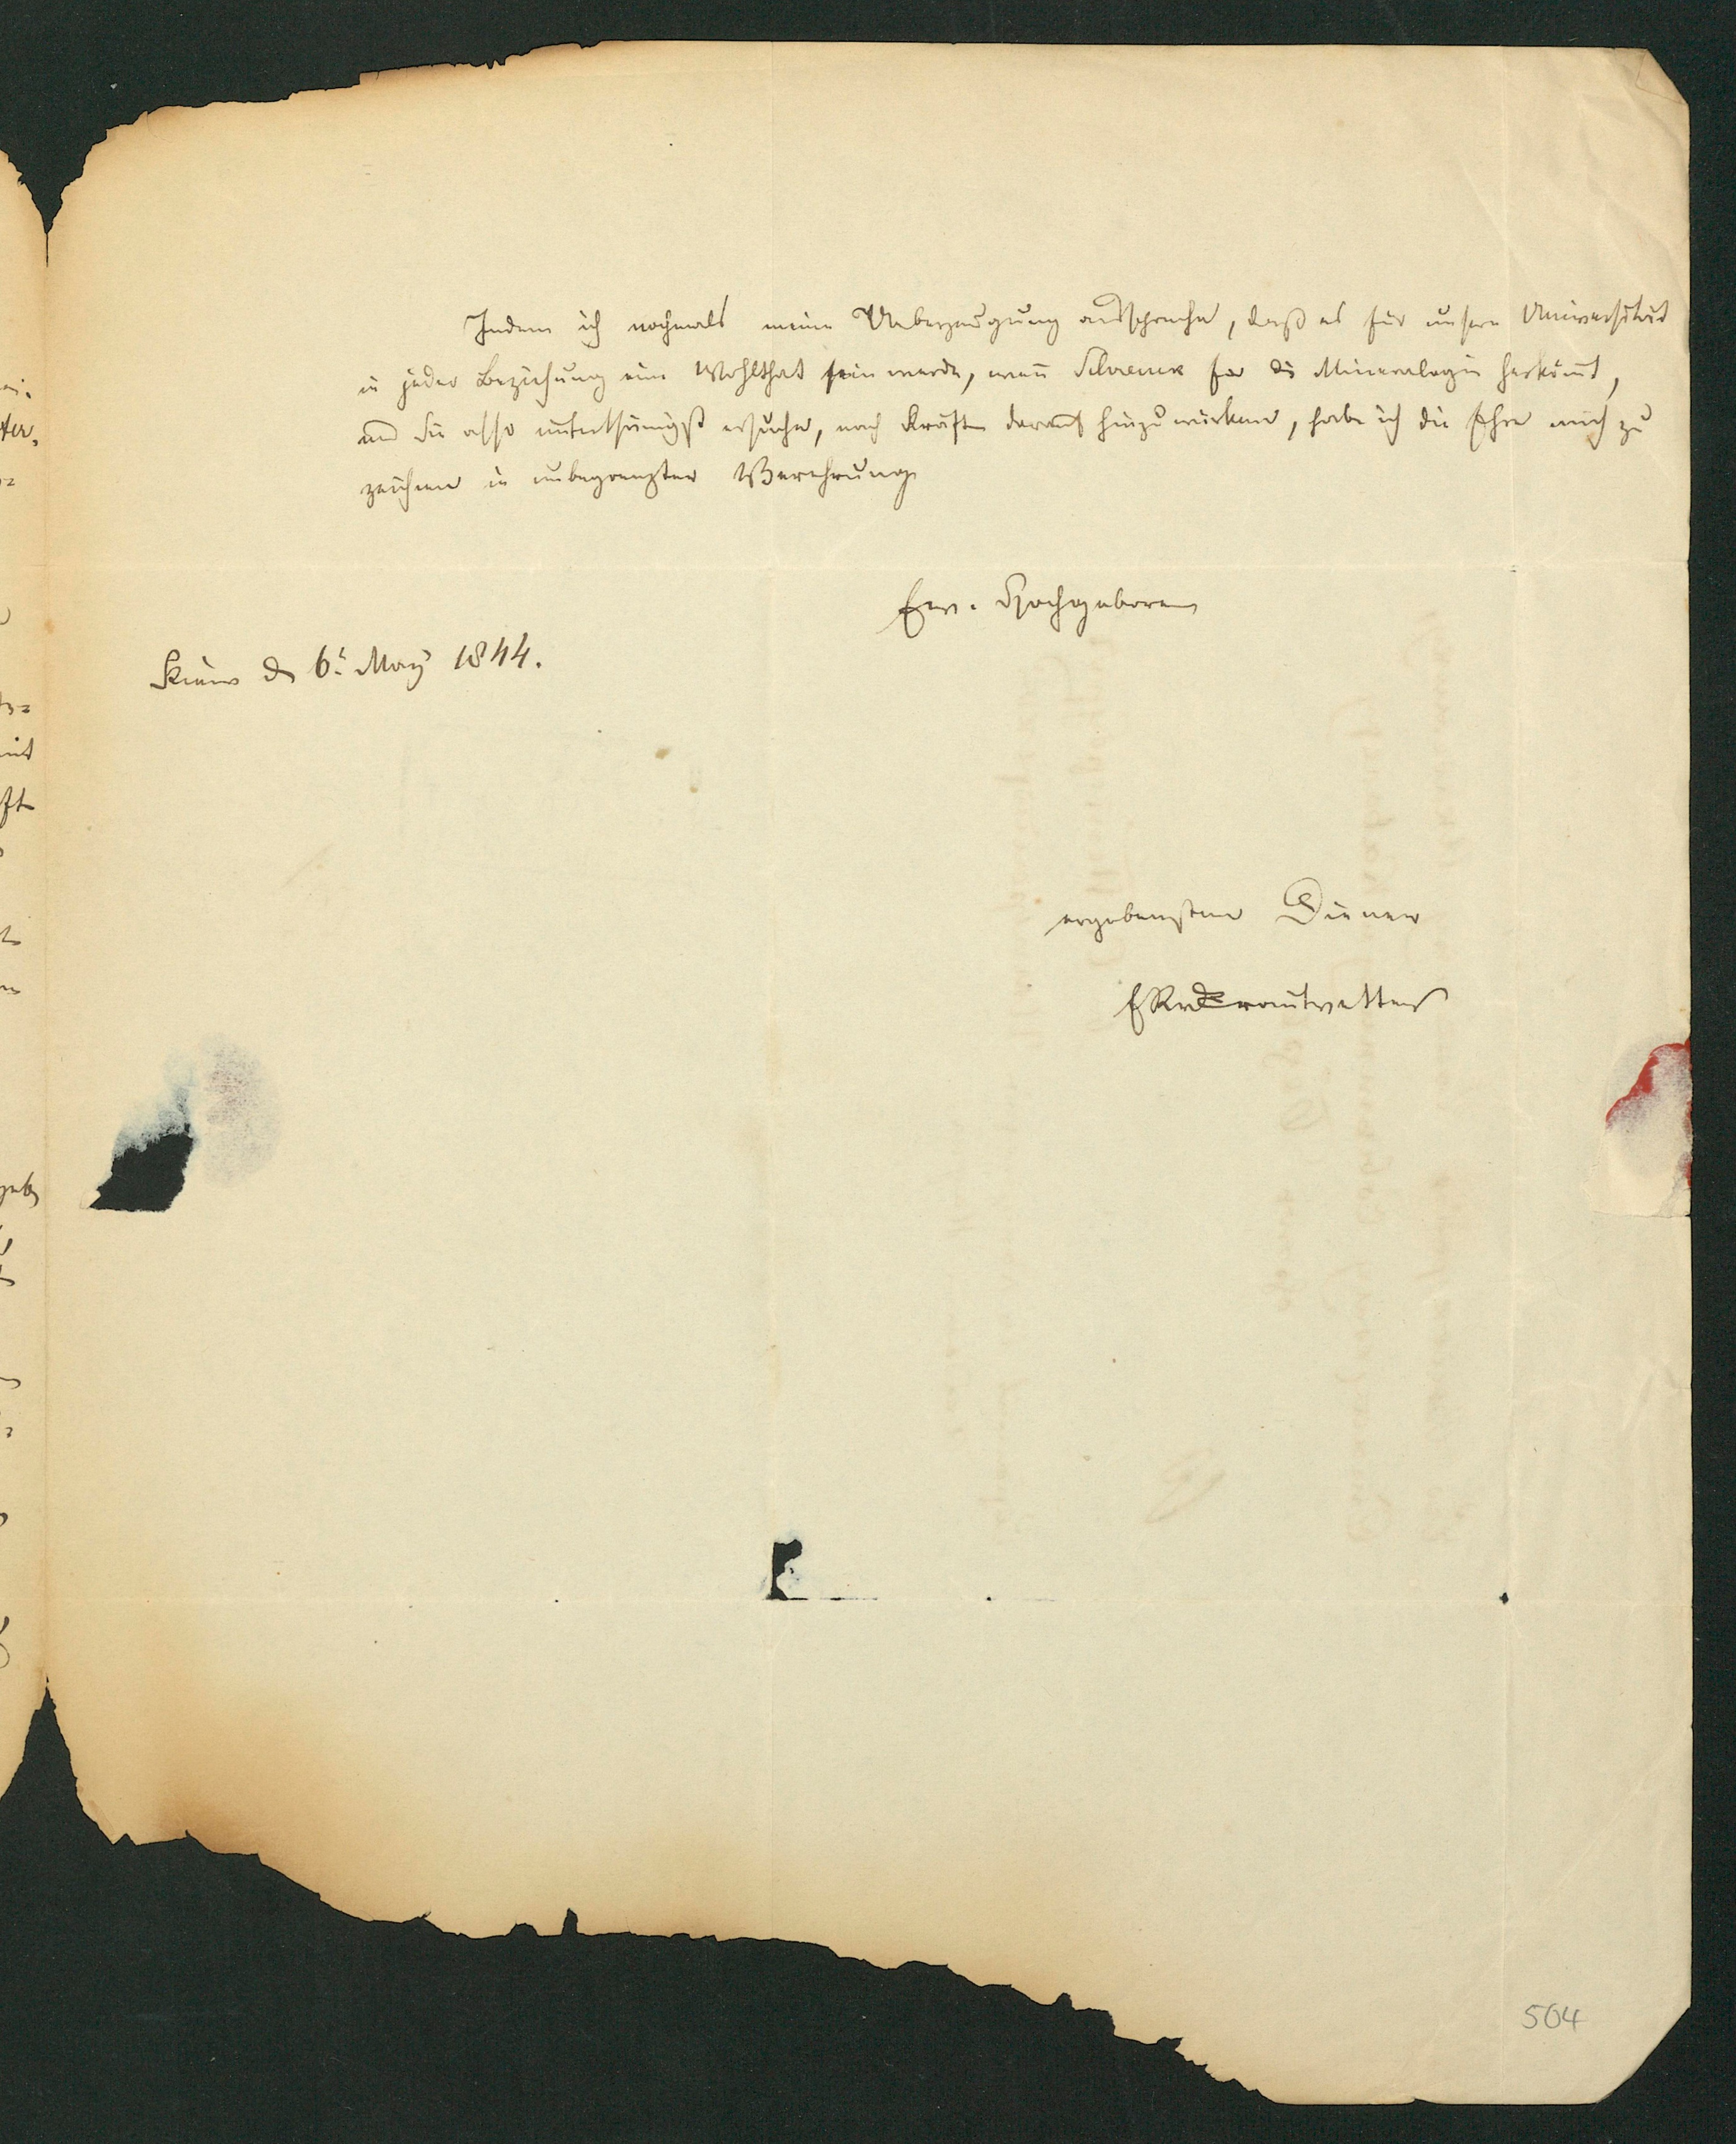 Indem ich nochmals meine Ueberzeugung ausspreche, daß es für unsere Universität
in jeder Beziehung eine Wohlthat sein werde, wenn Schrenk für die Mineralogie herkömt,
und Sie also unterthänigst ersuche, nach Kräften darauf hinzuwirken, habe ich die Ehre mich zu
zeichnen in unbegrenzter Verehrung
Ew. Hochgeboren
Kiew d 6t May 1844.
ergebenster Diener
ERv Trautvetter
504